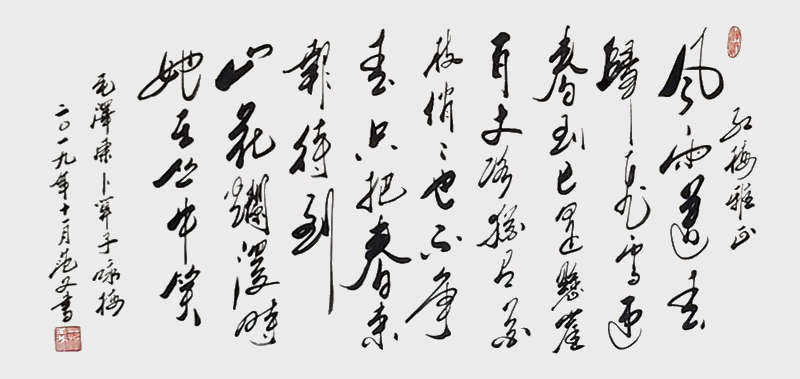 红梅雅正
风雨送春
歸飛雪迎
春到已是懸崖
百丈冰猶有花
枝俏〻也不争
春只把春来
報待到
山花爛漫時
她在丛中笑
毛澤東卜算子咏梅
二〇一九年十一月范又書